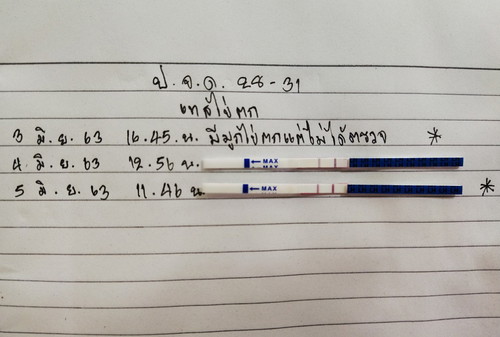 ป.จ.ด. 28-31
เทสไข่ตก
3 มิ.ย. 63 16.45.น. มีมูกไข่ตกแต่ไม่ได้ตรวจ *
4 มิ.ย. 63 12.56 น. ← MAX
5 มิ.ย. 63 11.46 น. ← MAX *